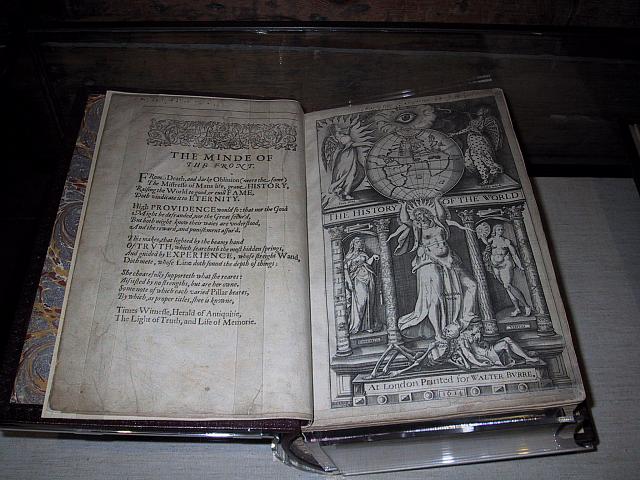 THE MINDE OF
THE FRONT.
From Death, and darke Oblivion (neere the same)
The Mistresse of Mans life, grave HISTORY,
Raising the World to good, or evill FAME,
Doth vindicate it to ETERNITY.
High PROVIDENCE would so: that nor the Good
Might be defrauded, nor the Great secur'd,
But both might know their wayes are understood,
And the reward, and punishment assur'd.
This makes, that lighted by the beamy hand
Of TRVTH, which searcheth the most hidden springs,
And guided by EXPERIENCE, whose streight Wand
Doth mete, whose Line doth sound the depth of things:
She chearefully supporteth what she reares;
Assisted by no strengths, but are her owne,
Some note of which each varied Pillar beares,
By which, as proper titles, she is knowne,
Times Witnesse, Herald of Antiquitie,
The Light of Truth, and Life of Memorie.
THE HISTORY OF THE WORLD
At London Printed for WALTER BVRRE.
1614